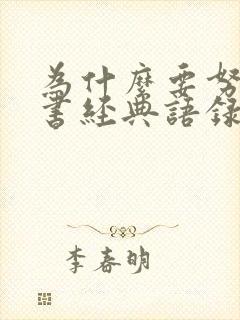 為什麼要努
書經典語錄
李春明